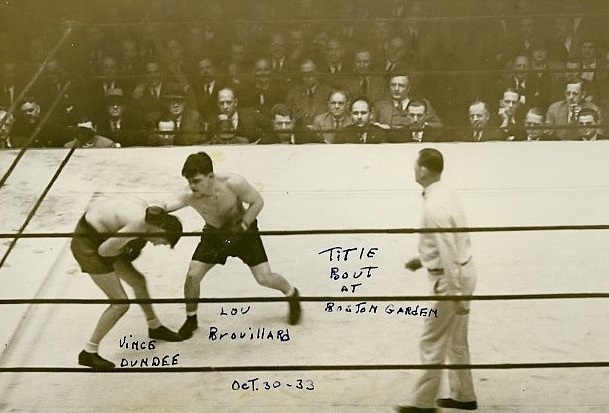 TITLE
BOUT
AT
BOSTON GARDEN
LOU
Brouillard
VINCE
DUNDEE
OCT. 30-33